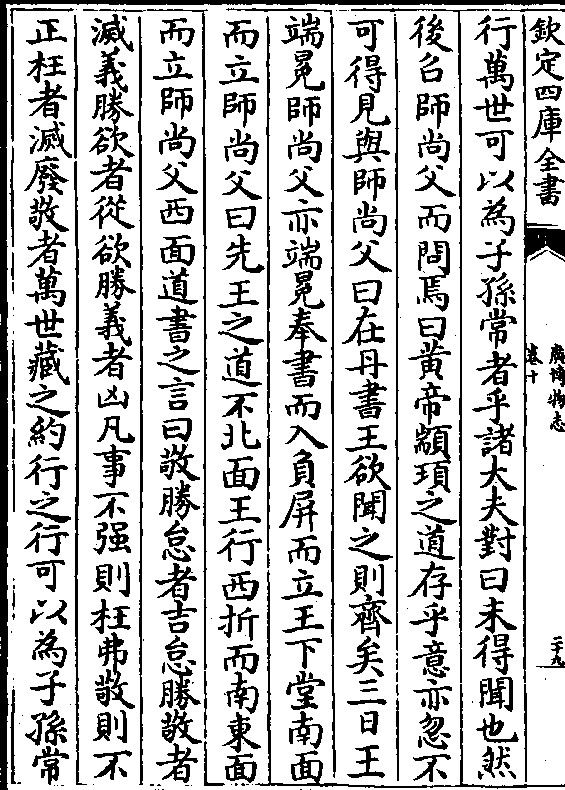 欽定四庫全書
廣博物志
卷十
二十九
行萬世可以為子孫常者乎諸大夫對曰未得聞也然
後召師尚父而問焉曰黄帝顓頊之道存乎意亦忽不
可得見與師尚父曰在丹書王欲聞之則齊矣三日王
端冕師尚父亦端冕奉書而入負屏而立王下堂南面
而立師尚父曰先王之道不北面王行西折而南東面
而立師尚父西面道書之言曰敬勝怠者吉怠勝敬者
滅義勝欲者從欲勝義者凶凡事不强則枉弗敬則不
正枉者滅廢敬者萬世藏之約行之行可以為子孫常